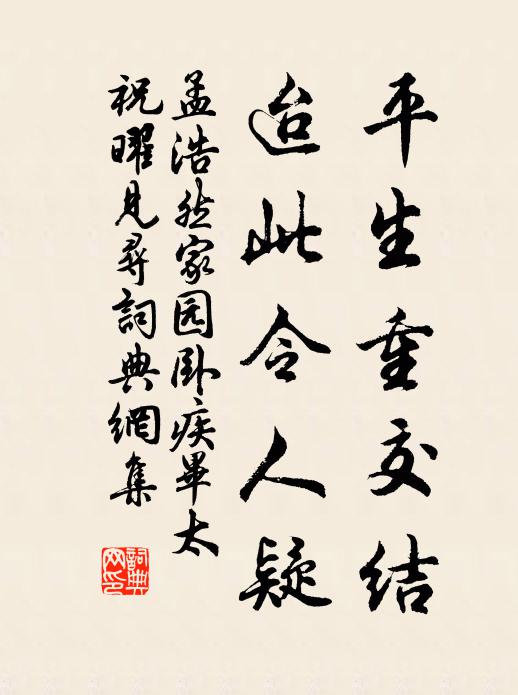 平生重交结
迨此令人疑
孟浩然家园卧疾畢太
祝曜見尋詞典網集
詞典
网印